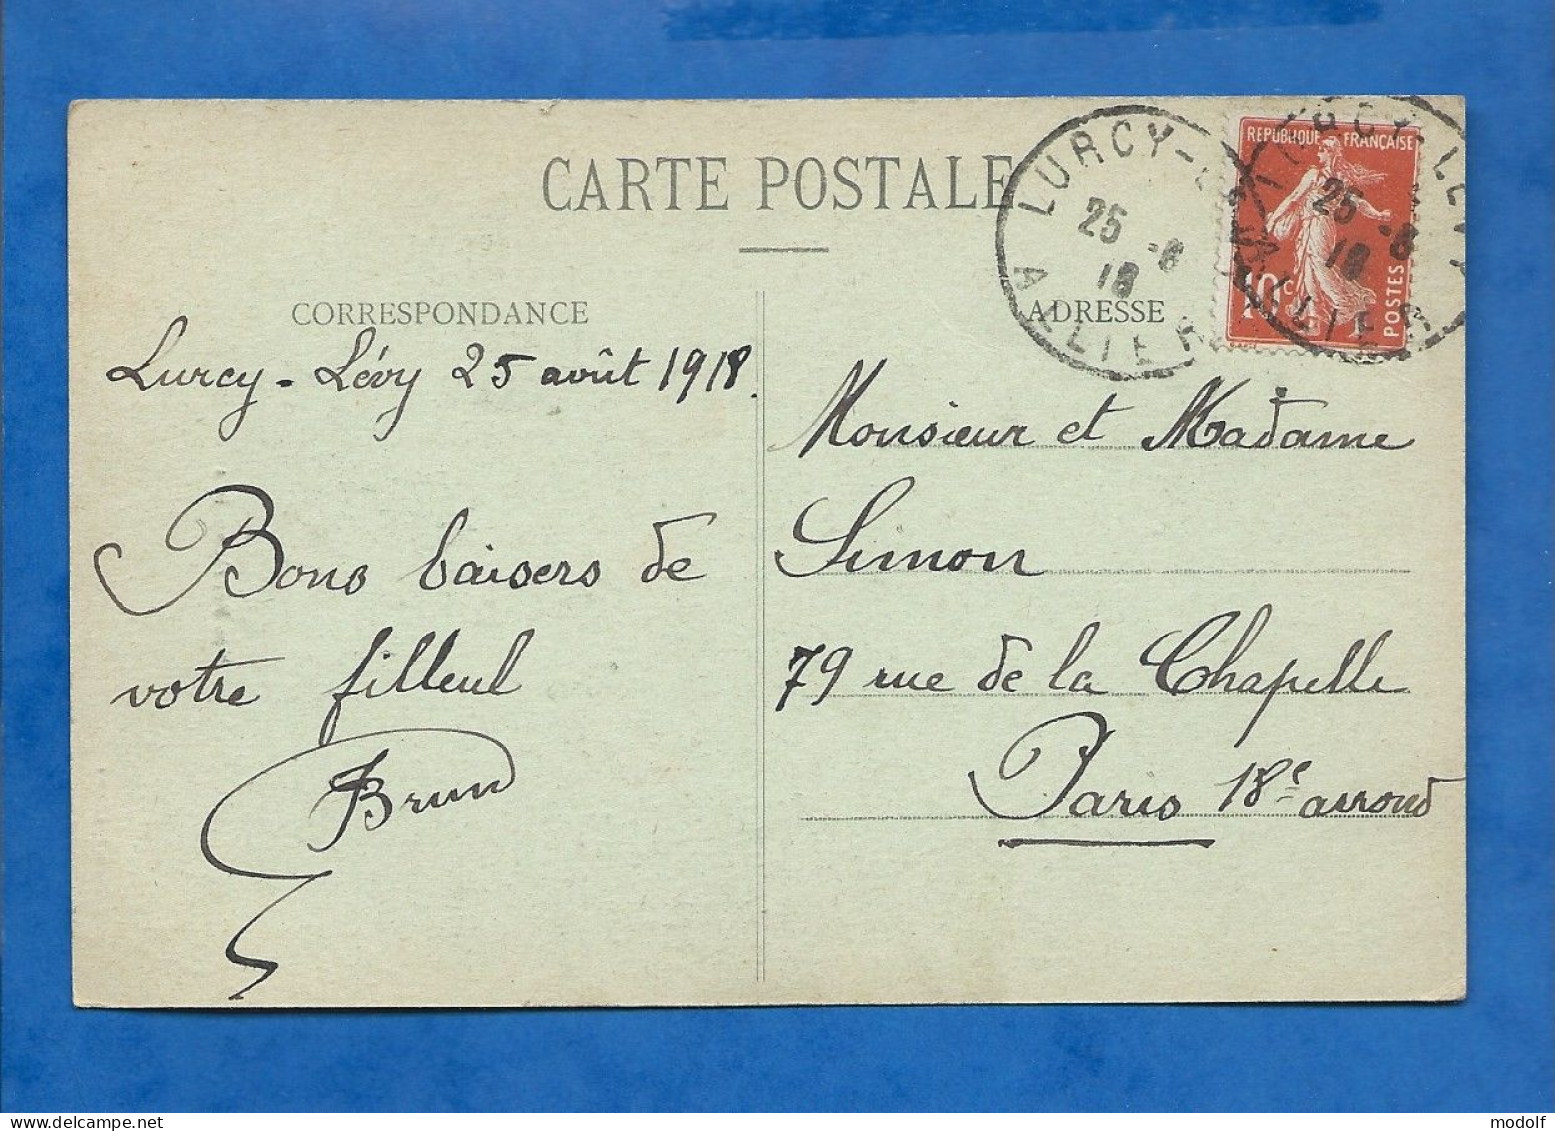 CARTE POSTALE
CORRESPONDANCE
Lurcy-Lévy 25 août 1918.
Bons baisers de
votre filleul
Brun
ADRESSE
Monsieur et Madame
Simon
79 rue de la Chapelle
Paris 18e arrond
LURCY-
25 -8
18
ALLIER
REPUBLIQUE FRANÇAISE
10c
POSTES
LURCY-LEVY
25 -8
18
ALLIER
modolf